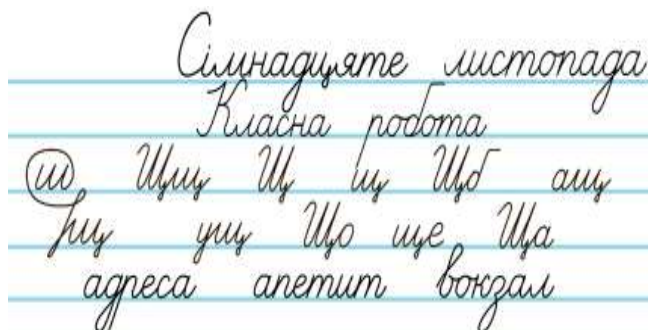 Сімнадцяте листопада
Класна робота
ш Щщ Щ щ Щб ащ
рщ ущ Що ще Ща
адреса апетит вокзал